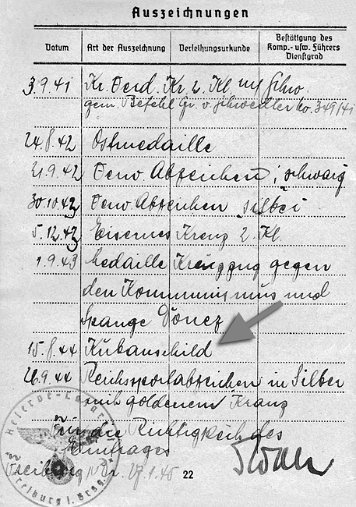 Auszeichnungen
Datum Art der Auszeichnung Verleihungsurkunde Bestätigung des Komp.- usw. Führers Dienstgrad
3.9.41 Kr. Verd. Kr. 2. Kl. mit Schw.
gem. Befehl v. Schwedler No. 349/41
24.8.42 Ostmedaille
21.9.42 Verw. Abzeichen i. schwarz
30.10.42 Verw. Abzeichen silber
5.12.42 Eisernes Kreuz 2. Kl.
1.9.43 Medaille Kreuzzug gegen
den Kommunismus und
Spange Donez
15.8.44 Kubanschild
26.9.44 Reichssportabzeichen in Silber
mit goldenem Kranz
Für die Richtigkeit des
Eintrages
Freiburg i. Br. 1.45
22
Freiburg i. Brsg.